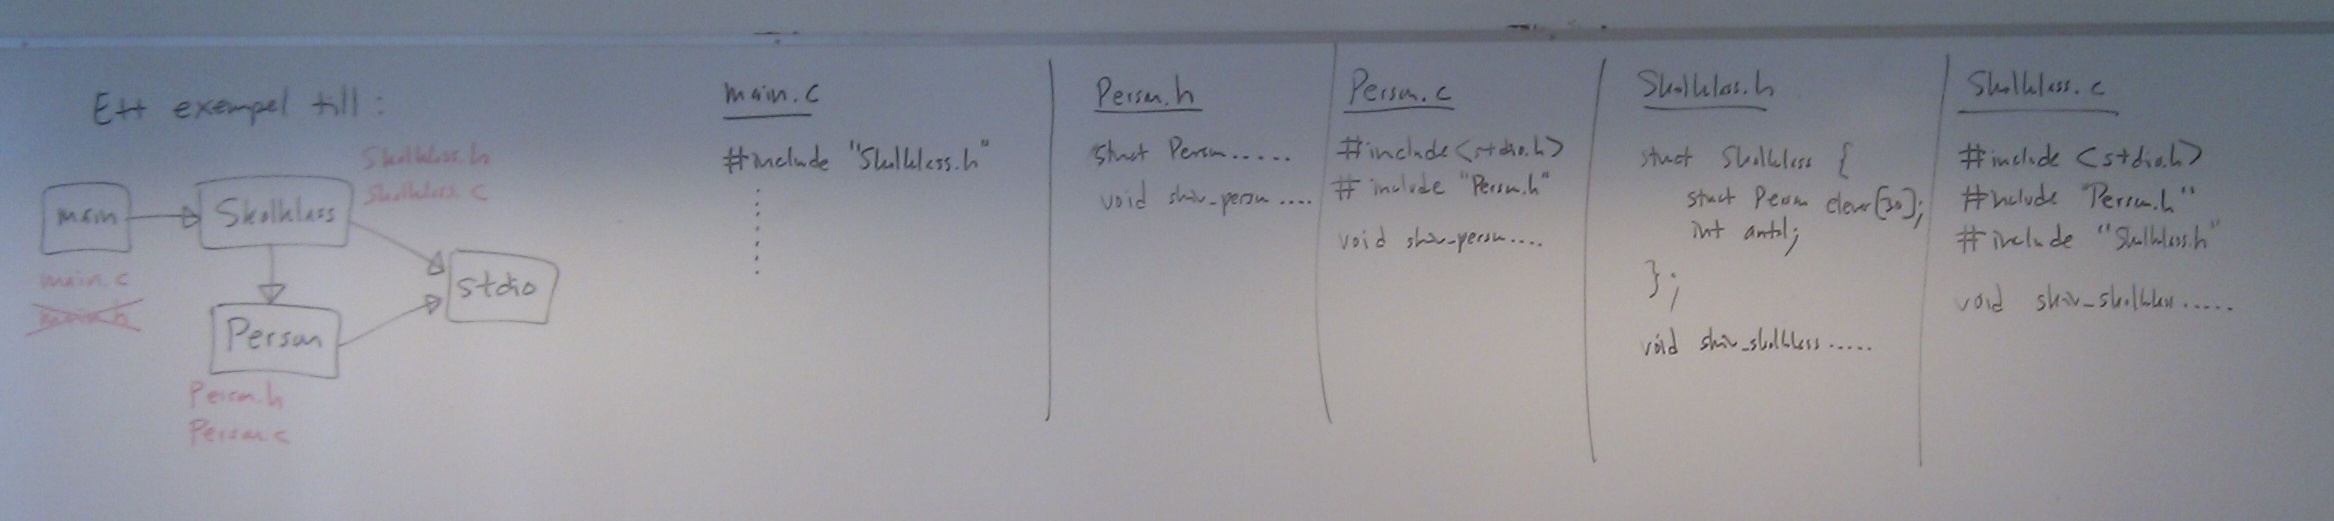 Ett exempel till:
Skolklass.h
Skolklass.c
main
Skolklass
stdio
main.c
main.h
Person
Person.h
Person.c
main.c
#include "Skolklass.h"
Person.h
struct Person.....
void skriv_person....
Person.c
#include <stdio.h>
#include "Person.h"
void skriv_person....
Skolklass.h
struct Skolklass {
struct Person elever[30];
int antal;
};
void skriv_skolklass.....
Skolklass.c
#include <stdio.h>
#include "Person.h"
#include "Skolklass.h"
void skriv_skolklass.....